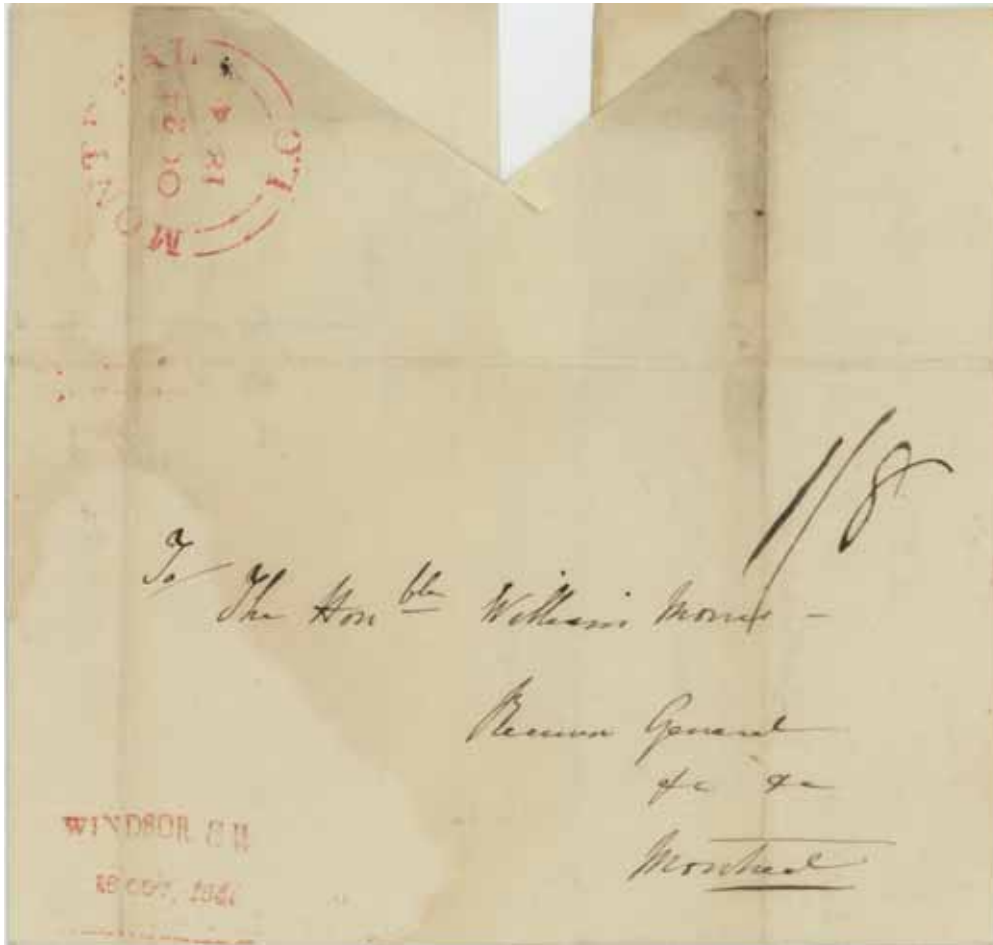 MONTREAL
OC 24
184
L.C
1/8
To
The Honble William Morris –
Receiver General
&c &c
Montreal
WINDSOR
OCT, 184